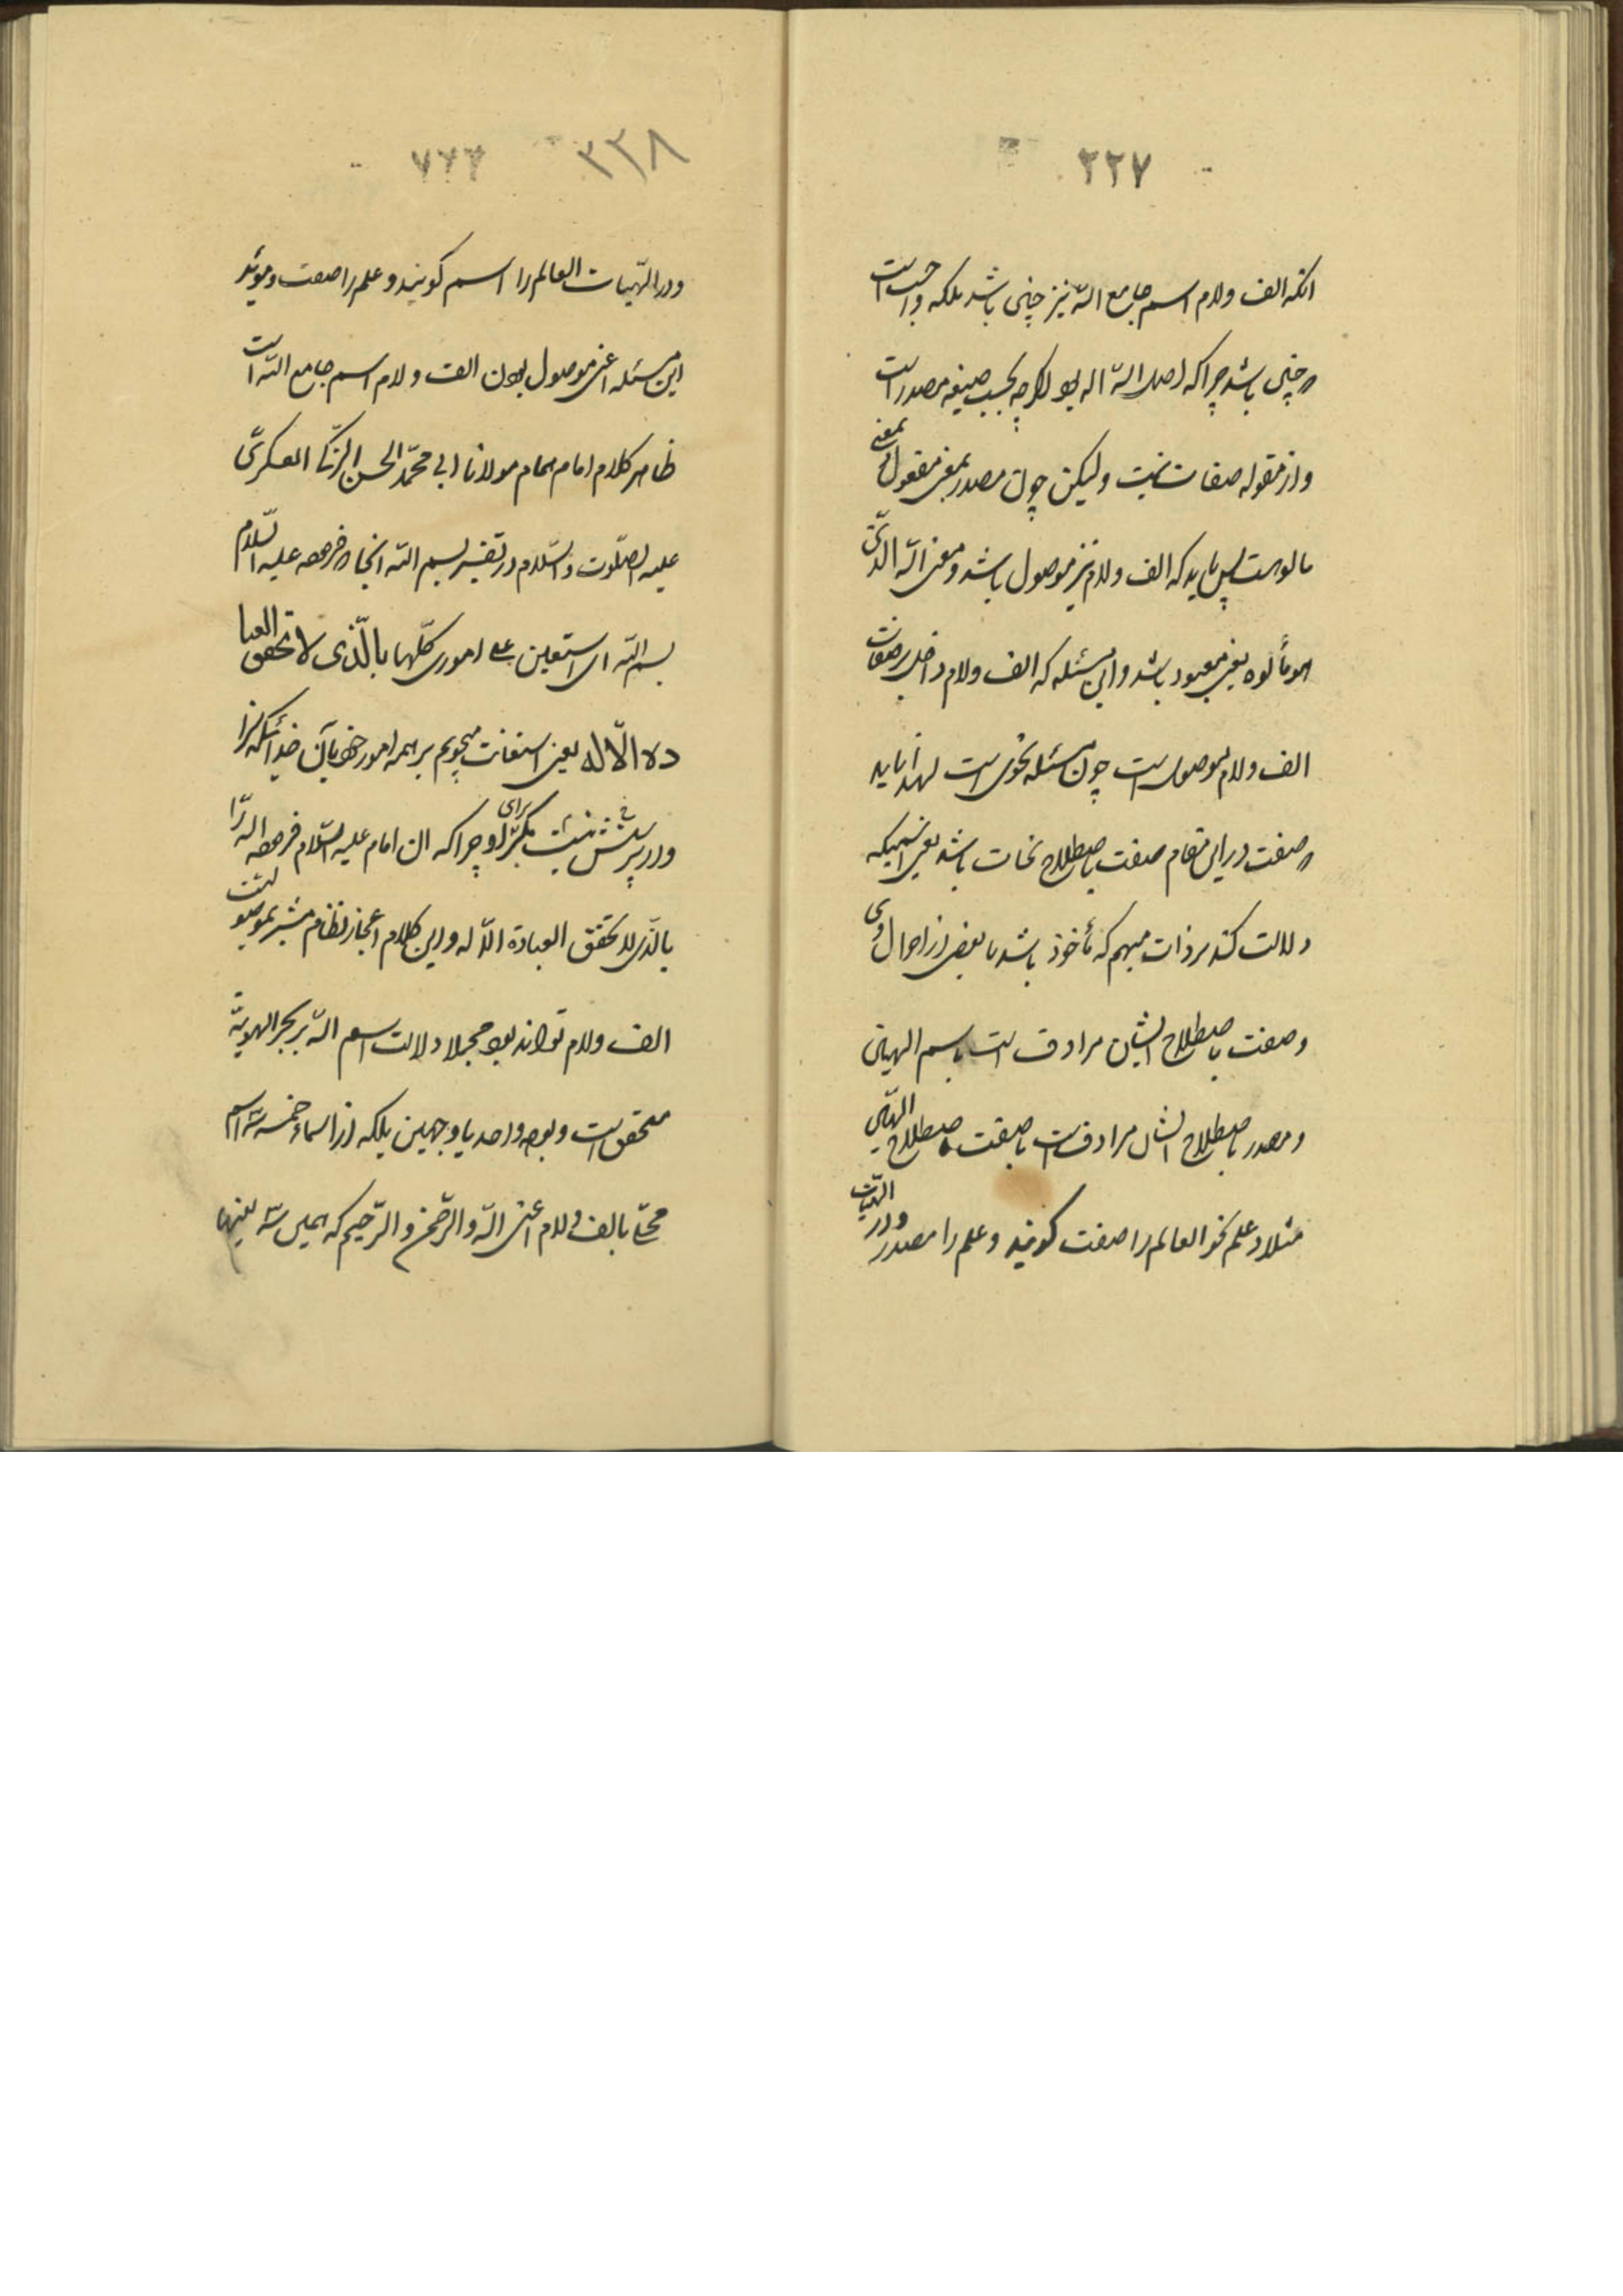 ۲۲۷
انکه الف ولام اسم جامع الله نیز چنین باشد بلکه واجبست
که چنین باشد چرا که اصل الله اله بود اکرچه بحسب صیغه مصدر است
واز مقوله صفات نیست ولیکن چون مصدر بمعنی مفعول بمعنی
مالوهست پس باید که الف ولام نیز موصول باشد ومعنی الله الذی
هو مألوه یعنی معبود باشد واین مسئله که الف ولام داخل بر صفات
الف ولام موصول است چون مسئله نحوی است لهذا باید
که صفت در این مقام صفت باصطلاح نحات باشد یعنی اسمیکه
دلالت کند بر ذات مبهم که مأخوذ باشد با بعضی از احوال وی
وصفت باصطلاح ایشان مرادف است باسم الهیین
ومصدر باصطلاح ایشان مرادفست با صفت باصطلاح الهیین
مثلا در علم نحو العالم را صفت کویند وعلم را مصدر ودر الهیات
۲۲۸
ودر الهیات العالم را اسم کویند وعلم را صفت ومؤید
این مسئله اعنی موصول بودن الف ولام اسم جامع الله است
ظاهر کلام امام همام مولانا ابی محمد الحسن الزکی العسکری
علیه الصلوت والسلام در تفسیر بسم الله انجا که فرموده علیه السلام
بسم الله ای استعین علی اموری کلها بالذی لا تحق العبا
دة الا له یعنی استعانت میجویم بر همه امور خود بآن خدائیکه سزا
ودر پرستش نیست مکر برای او چرا که ان امام علیه السلام فرموده الله را
بالذی لا تحق العبادة الا له واین کلام اعجاز نظام مشیر بموصولیت
الف ولام تواند بود مجملا دلالت اسم الله بر بحر الهویة
متحقق است وبوجه واحد یا وجهین بلکه از اسماء خمسه سه اسم
محلی بالف ولام اعنی الله والرحمن والرحیم که همین سه بعینها